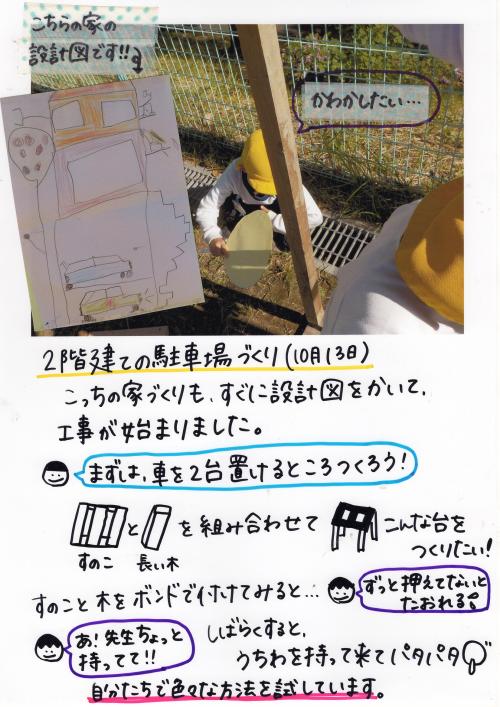 こちらの家の
設計図です!!
かわかしたい…
2階建ての駐車場づくり(10月13日)
こっちの家づくりも、すぐに設計図をかいて、
工事が始まりました。
まずは、車を2台置けるところつくろう!
と を組み合わせて こんな台を
すのこ 長い木 つくりたい!
すのこと木をボンドで付けてみると…
ずっと押えてないと
たおれる。
あ!先生ちょっと
持ってて!!
しばらくすると、
うちわを持って来てパタパタ
自分たちで色々な方法を試しています。